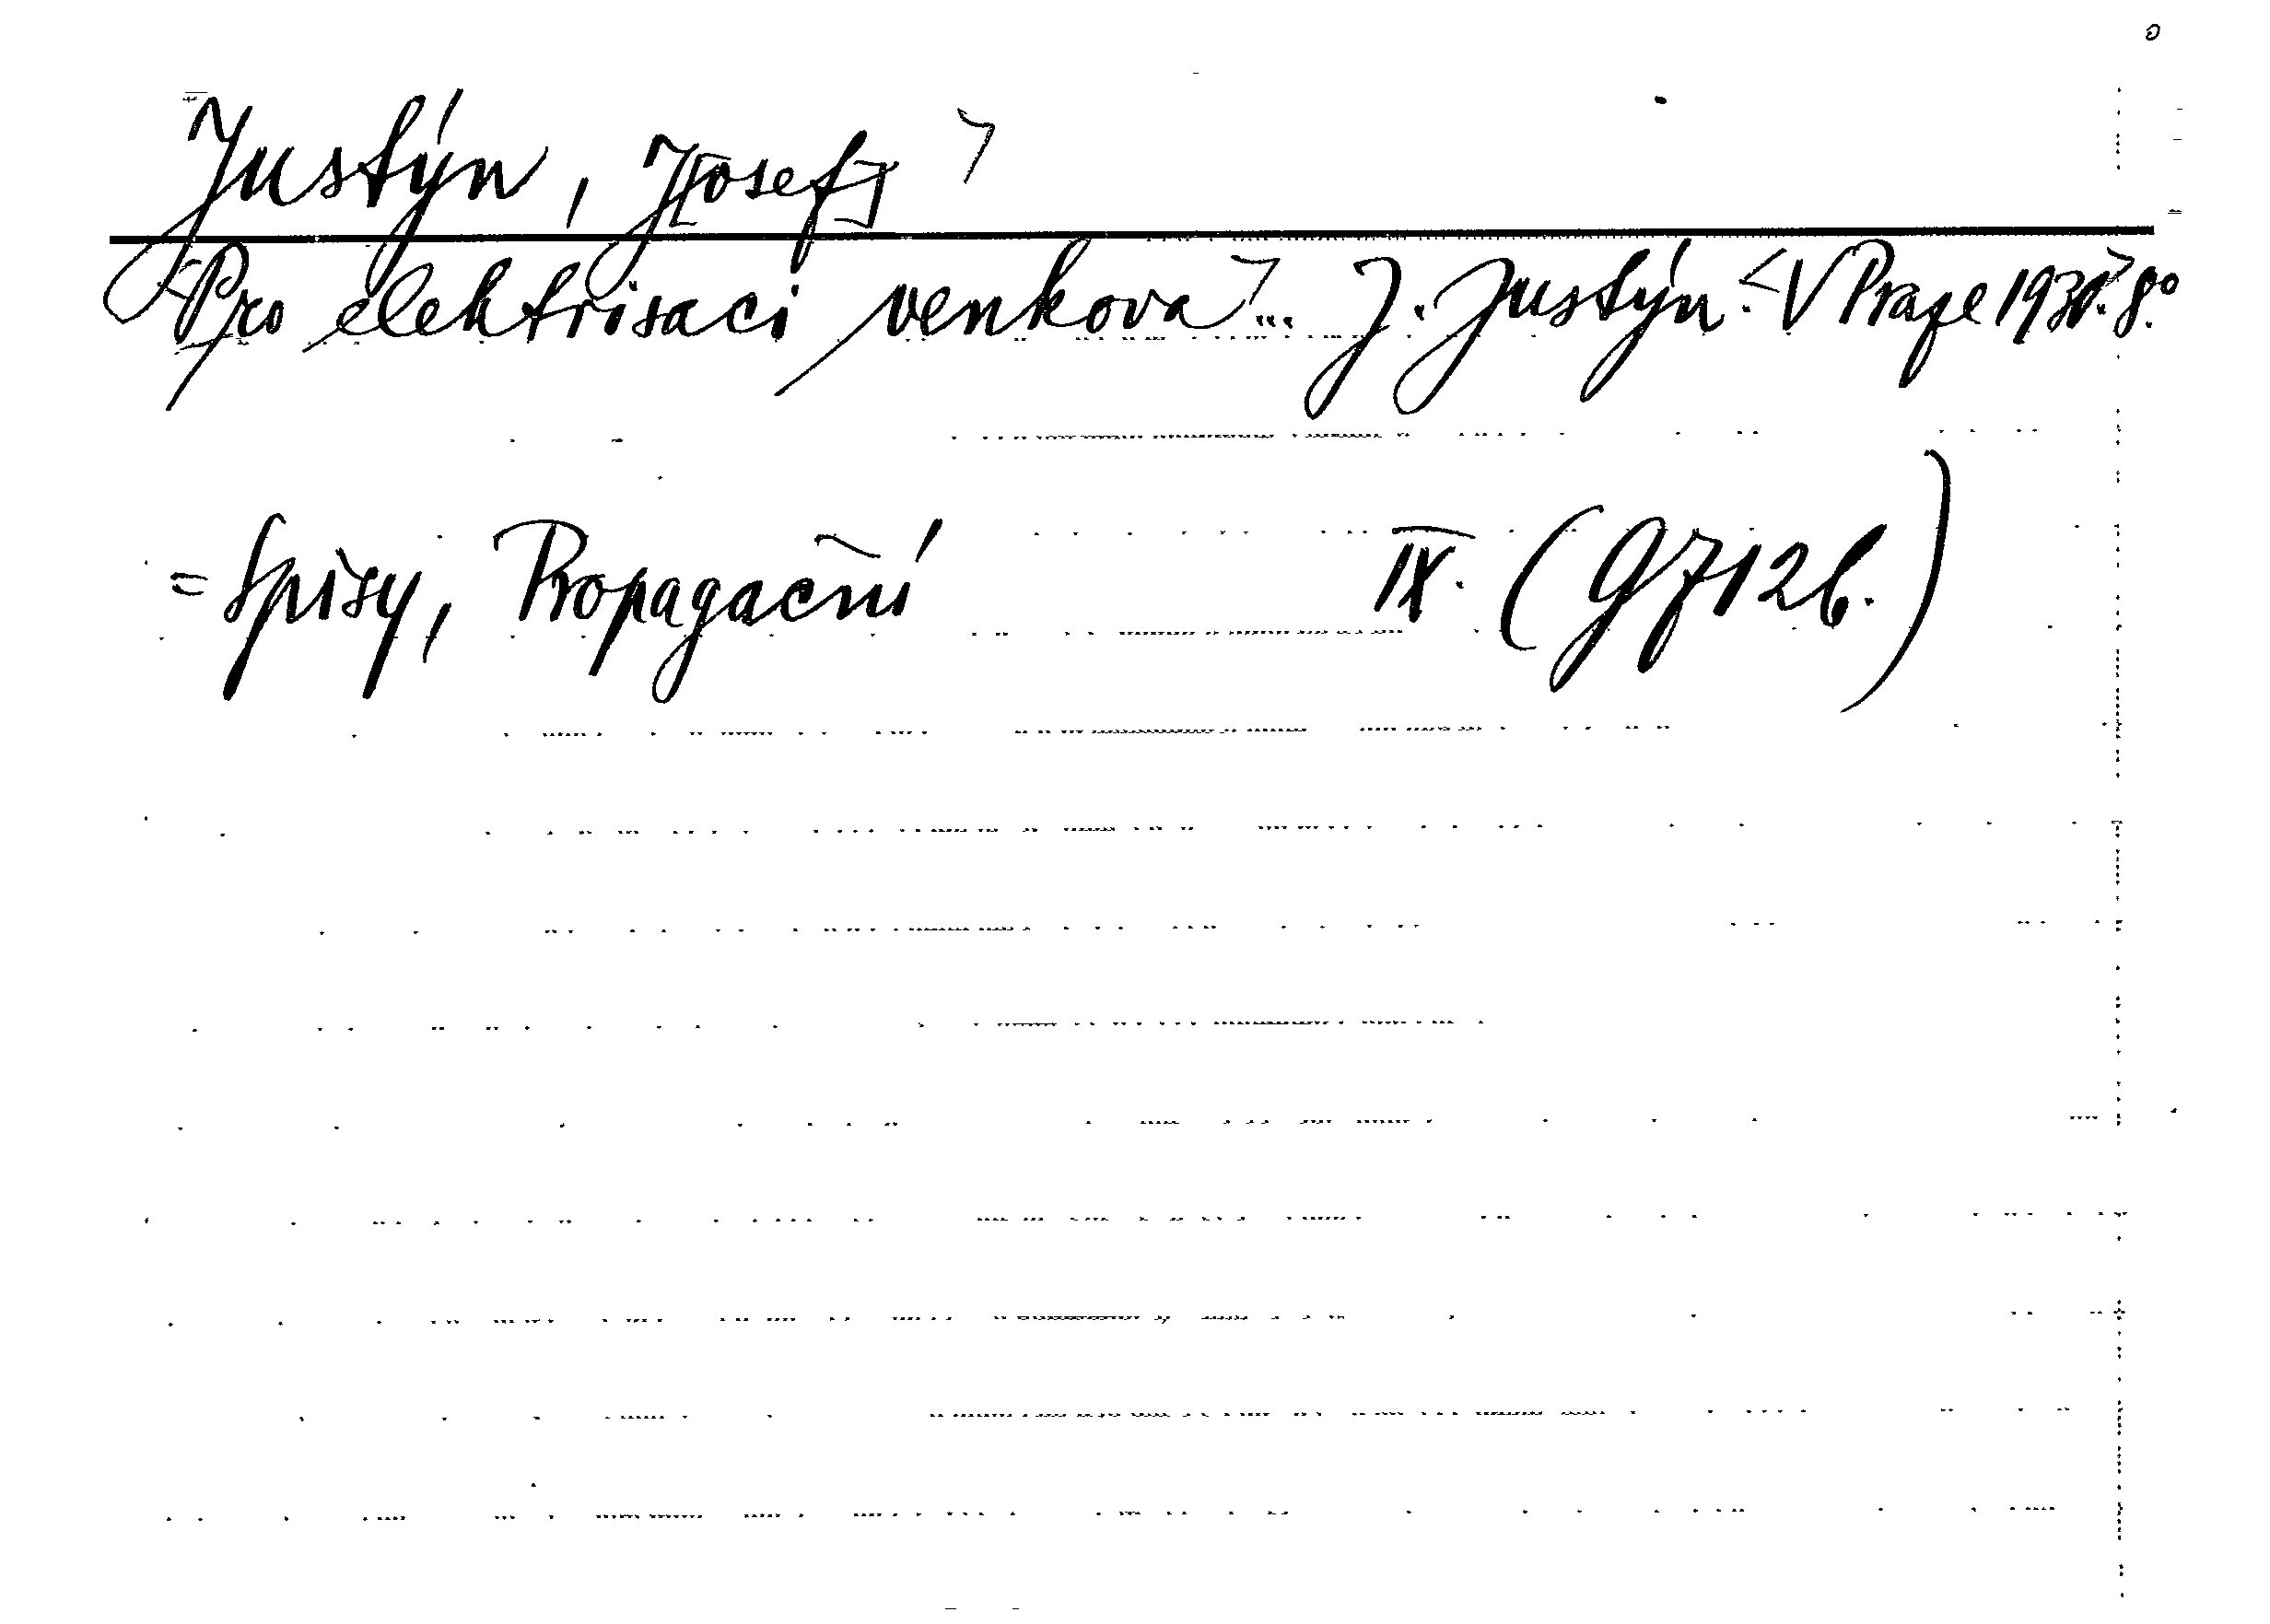 Justýn, J[osef]
Pro elektrisaci venkova... J. Justýn. V Praze 1930. 8°.
= Spisy, Propagační IX. (G 712 b.)